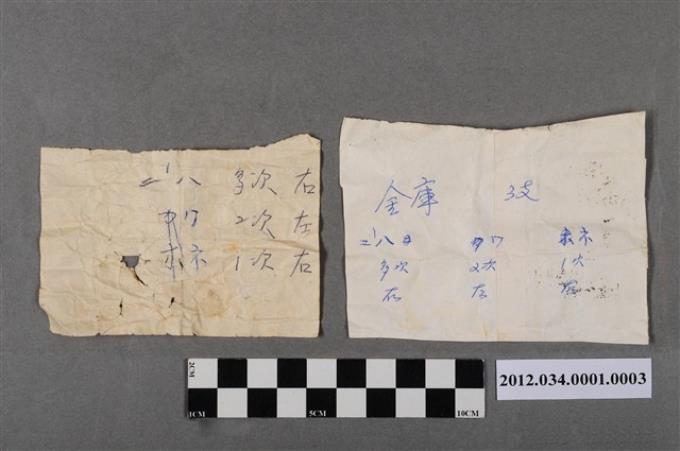 二八 多次 右
カワ 2次 左
ホネ 1次 右
金庫 3支
二八 カワ ホネ
多次 2次 1次
右 左 右
2CM
1CM 5CM 10CM
2012.034.0001.0003